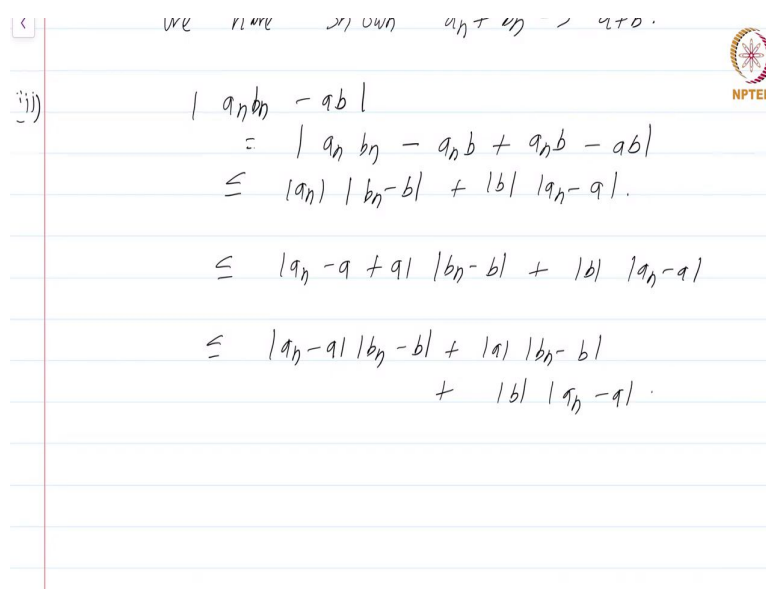 we have shown an + bn → a+b.
NPTEL
iii) | an bn - ab |
= | an bn - an b + an b - ab |
≤ |an| |bn - b| + |b| |an - a|.
≤ |an - a + a| |bn - b| + |b| |an - a|
≤ |an - a| |bn - b| + |a| |bn - b|
+ |b| |an - a| .